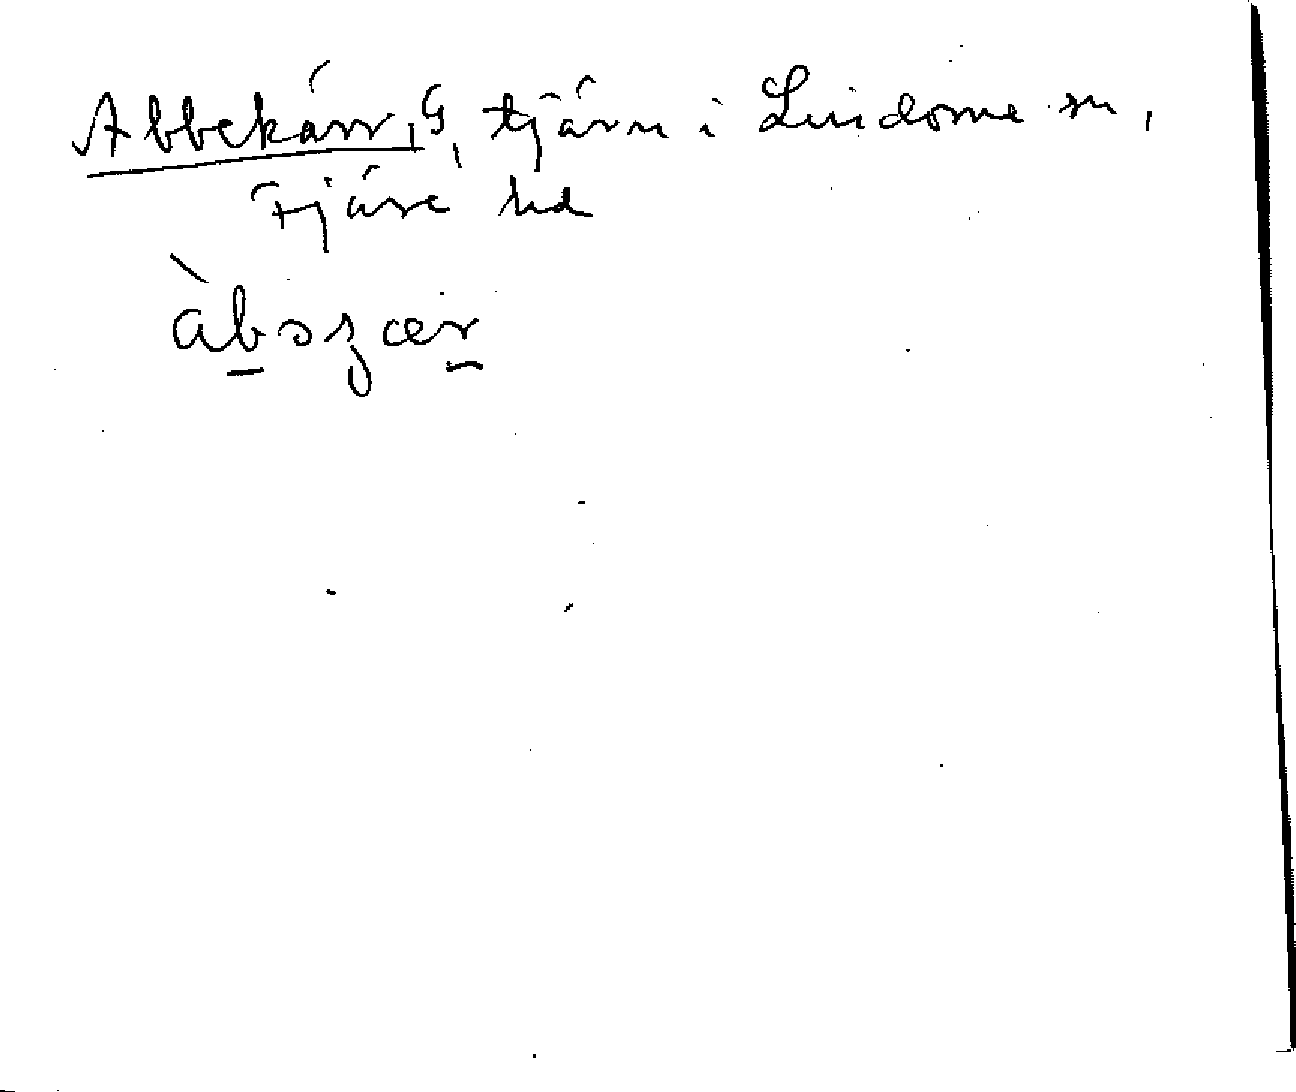 Abbekärr, G, tjärn i Lindome sn,
Fjäre hd
àbəʒær